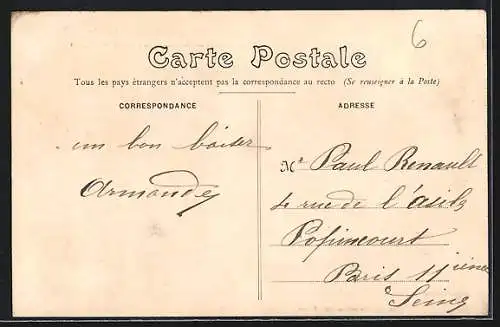 6
Carte Postale
Tous les pays étrangers n'acceptent pas la correspondance au recto (Se renseigner à la Poste)
CORRESPONDANCE
ADRESSE
un bon baiser
Armande
Mr Paul Renault
4 rue de l'asile
Popincourt
Paris 11ième
Seine